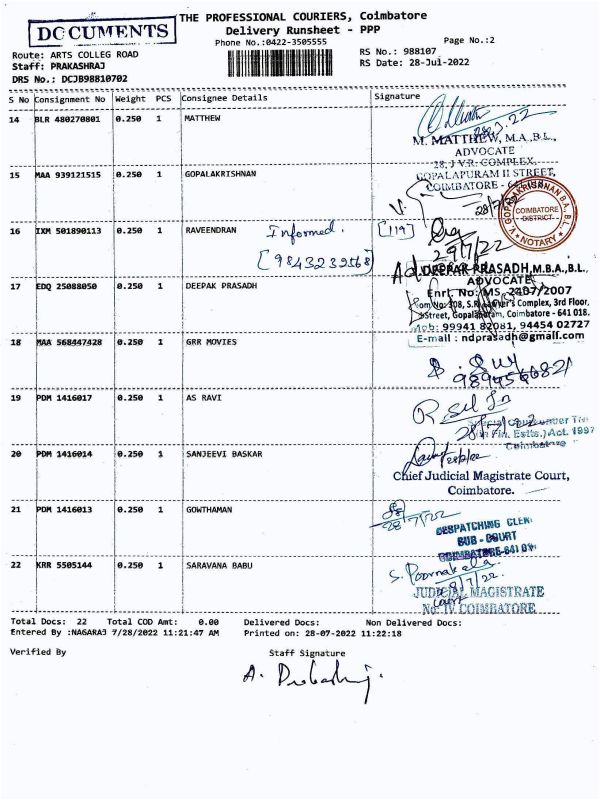 DOCUMENTS
THE PROFESSIONAL COURIERS, Coimbatore
Delivery Runsheet - PPP
Phone No.:0422-3505555
Page No.:2
Route: ARTS COLLEG ROAD
RS No.: 988107
Staff: PRAKASHRAJ
RS Date: 28-Jul-2022
DRS No.: DCJB98810702
S No Consignment No Weight PCS Consignee Details Signature
14 BLR 480270801 0.250 1 MATTHEW
M. MATTHEW, M.A.,B.L.,
ADVOCATE
28, J V.R. COMPLEX,
GOPALAPURAM II STREET,
COIMBATORE -
15 MAA 939121515 0.250 1 GOPALAKRISHNAN
28/7/22
V. GOPALAKRISHNAN B.A., B.L.,
COIMBATORE
DISTRICT
NOTARY
16 IXM 501890113 0.250 1 RAVEENDRAN Informed. [119]
[9843232568]
29/7/22
17 EDQ 25088050 0.250 1 DEEPAK PRASADH
DEEPAK PRASADH, M.B.A., B.L.,
ADVOCATE
Enrl. No: MS. 2407/2007
308, Complex, 3rd Floor,
Street, Gopalapuram, Coimbatore - 641 018.
Mob: 99941 82081, 94454 02727
E-mail : ndprasadh@gmail.com
18 MAA 568447428 0.250 1 GRR MOVIES
19 PDM 1416017 0.250 1 AS RAVI
28/7/22
Act. 1997
Coimbatore
20 PDM 1416014 0.250 1 SANJEEVI BASKAR
Chief Judicial Magistrate Court,
Coimbatore.
21 PDM 1416013 0.250 1 GOWTHAMAN
28/7/22
DESPATCHING CLERK
SUB - COURT
COIMBATORE-641 01
22 KRR 5505144 0.250 1 SARAVANA BABU
S. Poornakala
JUDICIAL MAGISTRATE
No. IV. COIMBATORE
Total Docs: 22 Total COD Amt: 0.00 Delivered Docs: Non Delivered Docs:
Entered By :NAGARAJ 7/28/2022 11:21:47 AM Printed on: 28-07-2022 11:22:18
Verified By Staff Signature